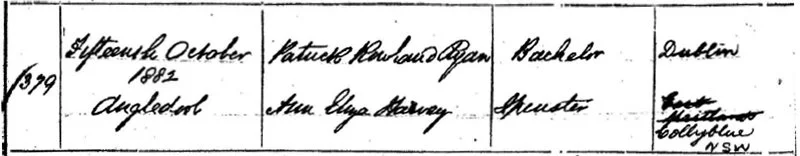 1379
Fifteenth October
1882
Angledool
Patrick Rowland Ryan
Ann Eliza Harvey
Bachelor
Spinster
Dublin
East
Maitland
Collyblue
NSW